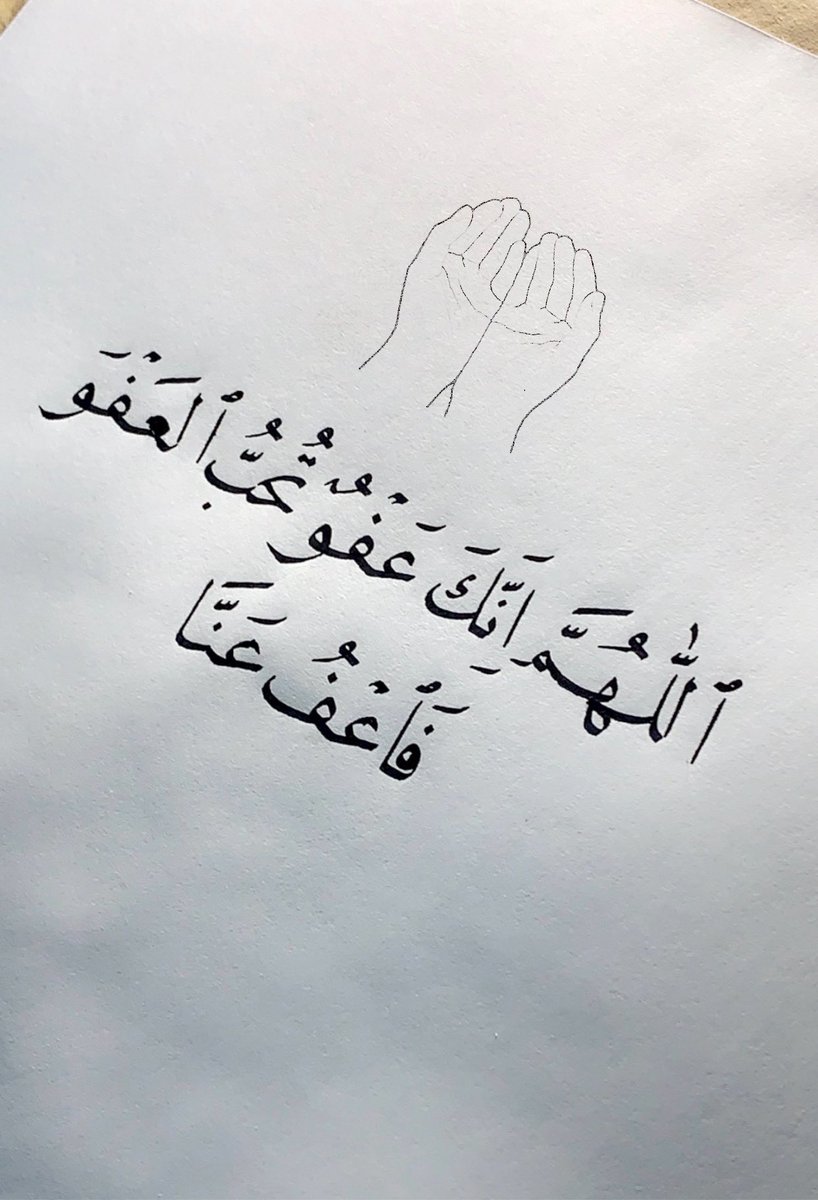 ٱللّٰهُمَّ إِنَّكَ عَفْوٌ تُحِبُّ ٱلعَفْوَ
فَٱعْفُ عَنَّا